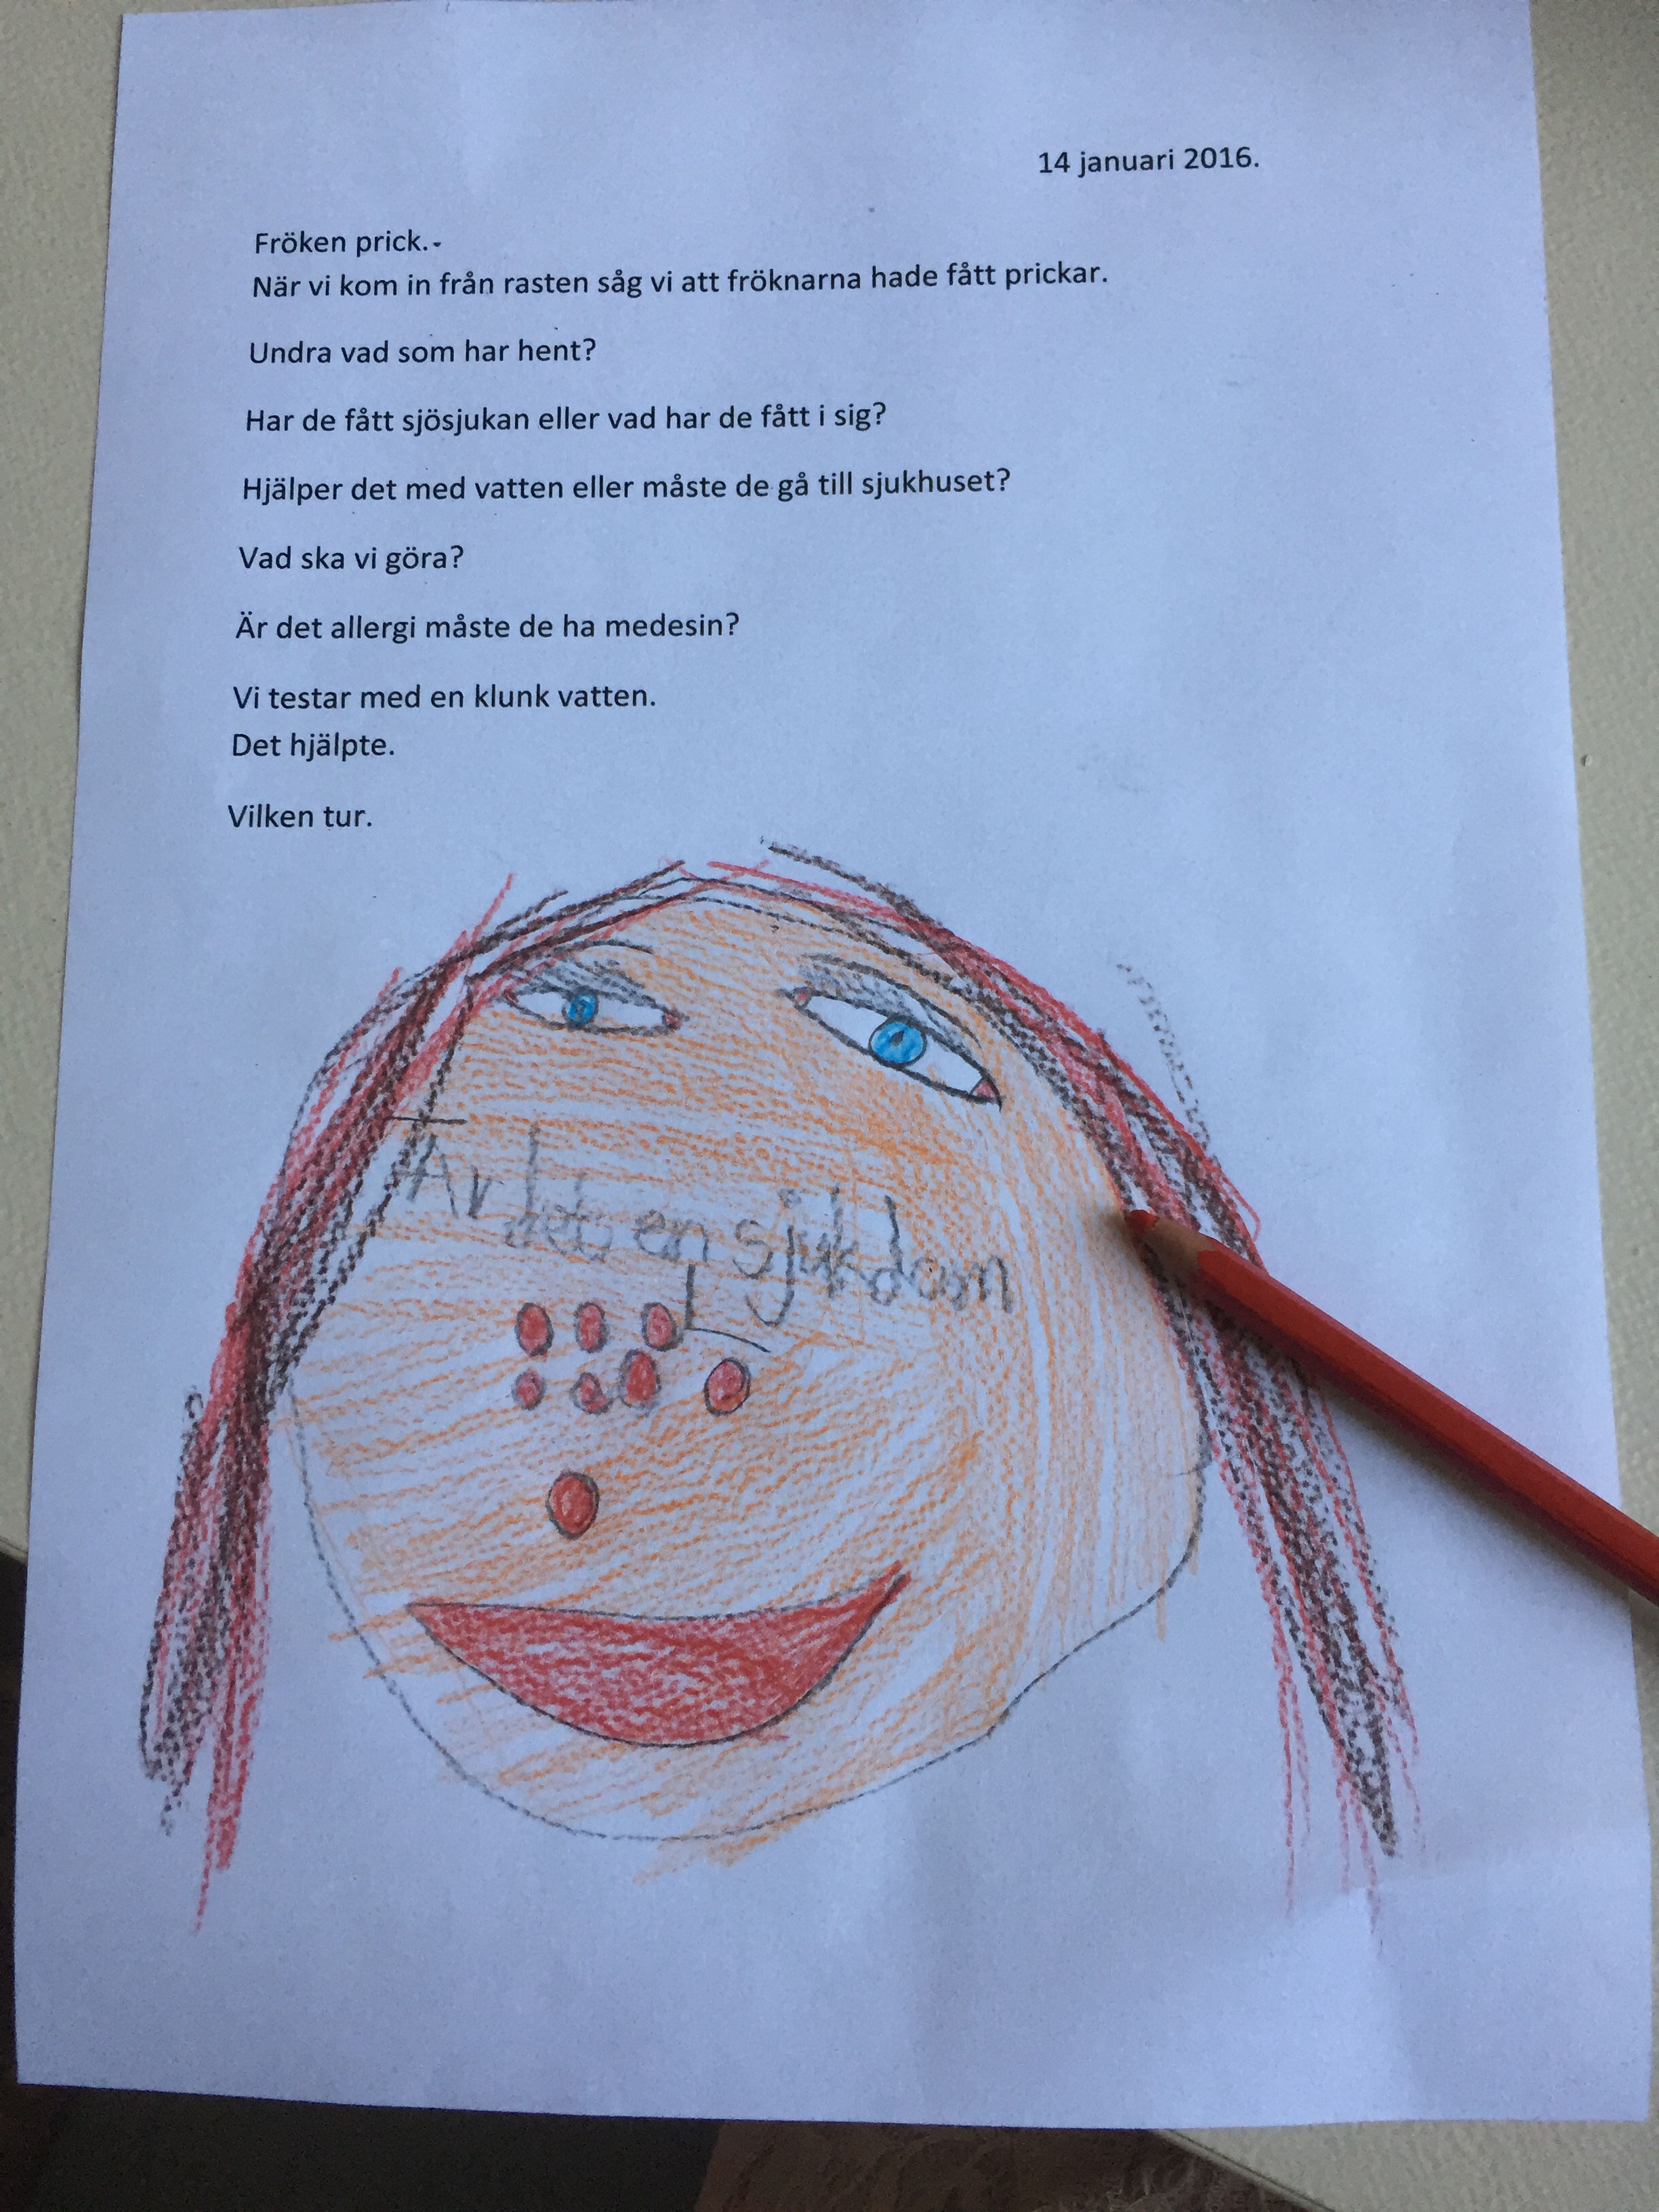 14 januari 2016.
Fröken prick.-
När vi kom in från rasten såg vi att fröknarna hade fått prickar.
Undra vad som har hent?
Har de fått sjösjukan eller vad har de fått i sig?
Hjälper det med vatten eller måste de gå till sjukhuset?
Vad ska vi göra?
Är det allergi måste de ha medesin?
Vi testar med en klunk vatten.
Det hjälpte.
Vilken tur.
Är det en sjukdom